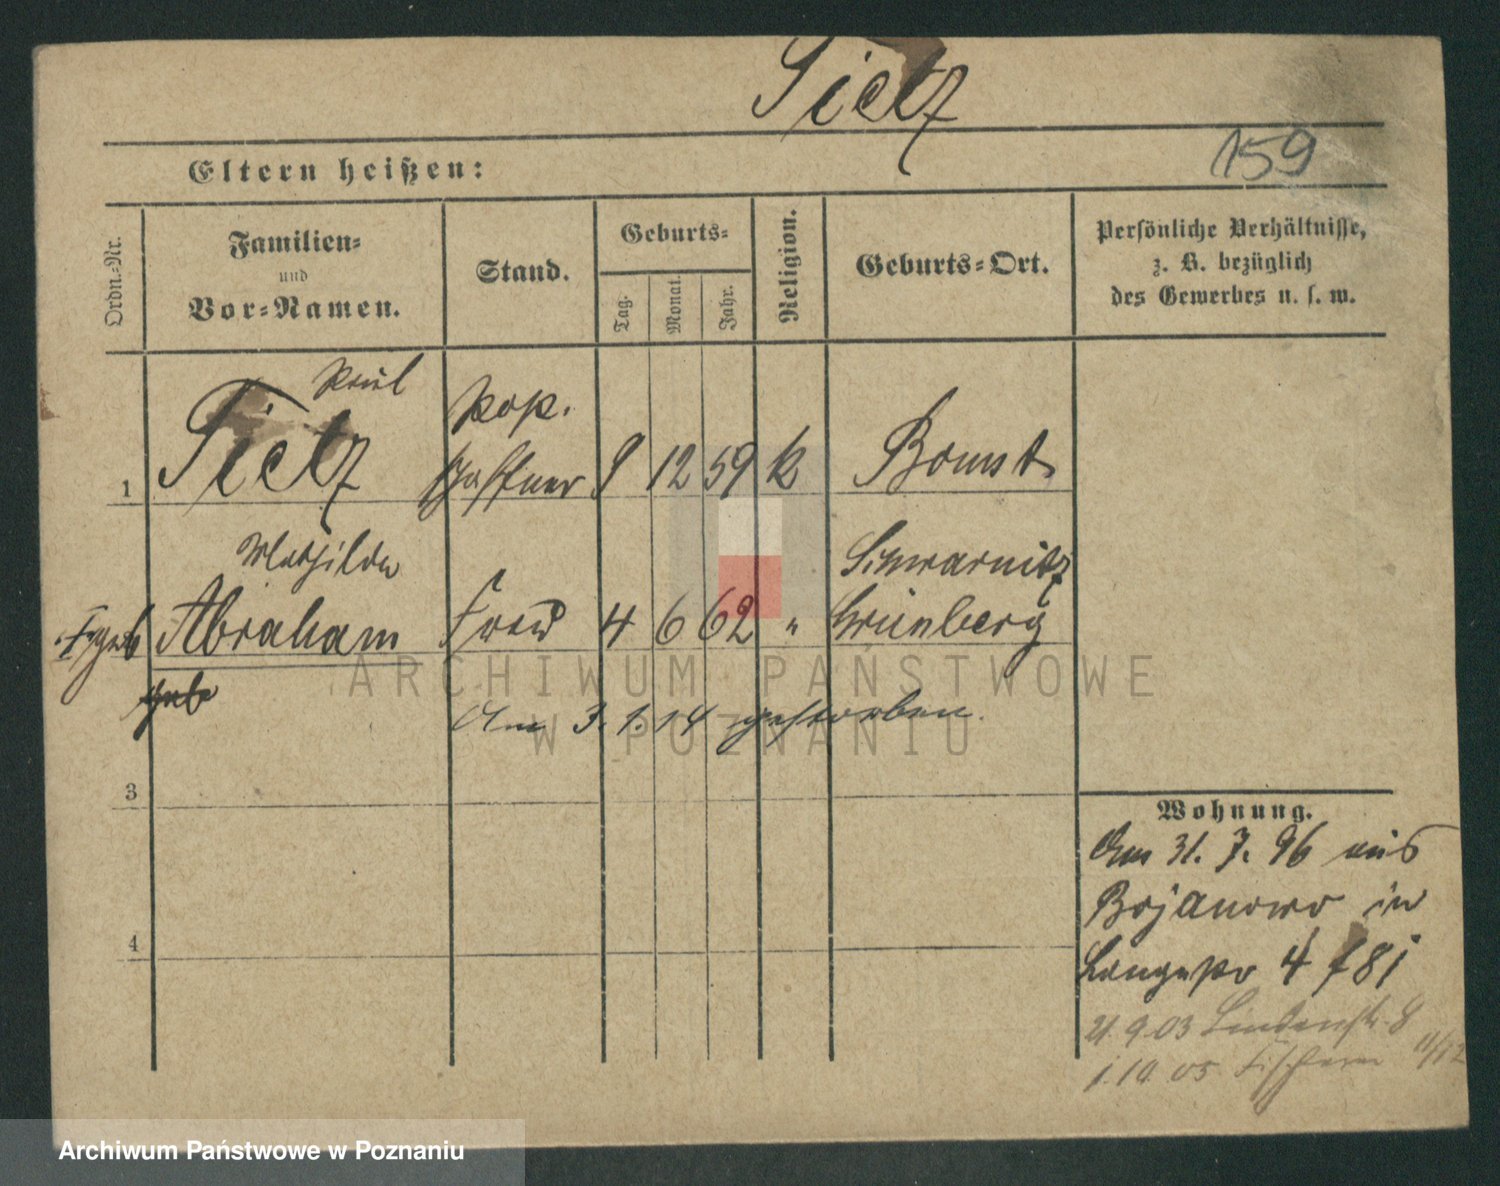 Tietz
159
Eltern heißen:
Ordn.-Nr.
Familien-
und
Vor-Namen.
Stand.
Geburts-
Tag.
Monat.
Jahr.
Religion.
Geburts-Ort.
Persönliche Verhältnisse,
z. B. bezüglich
des Gewerbes u. s. w.
Paul
1 Tietz
schaffner 9 12 59 k Bomst
Mathilde
geb Abraham
Frau 4 6 62 "
Schwarnitz
Grünberg
geb
Am 3.1.14 gestorben.
3
4
Wohnung.
Am 31. 7. 96 aus
Bojanowo in
21.9.03 Lindenstr. 8
1.10.05
ARCHIWUM PAŃSTWOWE
W POZNANIU
Archiwum Państwowe w Poznaniu